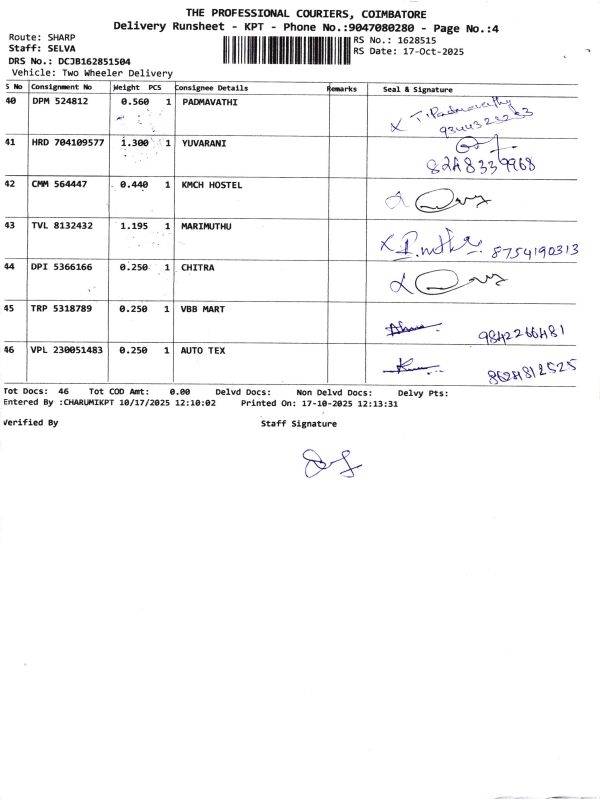 THE PROFESSIONAL COURIERS, COIMBATORE
Delivery Runsheet - KPT - Phone No.:9047080280 - Page No.:4
Route: SHARP
RS No.: 1628515
Staff: SELVA
RS Date: 17-Oct-2025
DRS No.: DCJB162851504
Vehicle: Two Wheeler Delivery
S No Consignment No Weight PCS Consignee Details Remarks Seal & Signature
40 DPM 524812 0.560 1 PADMAVATHI X T.Padmavathy
9344323263
41 HRD 704109577 1.300 1 YUVARANI
8248339968
42 CMM 564447 0.440 1 KMCH HOSTEL
43 TVL 8132432 1.195 1 MARIMUTHU 8754190313
44 DPI 5366166 0.250 1 CHITRA
45 TRP 5318789 0.250 1 VBB MART
9842266481
46 VPL 230051483 0.250 1 AUTO TEX
Tot Docs: 46 Tot COD Amt: 0.00 Delvd Docs: Non Delvd Docs: Delvy Pts:
Entered By :CHARUMIKPT 10/17/2025 12:10:02 Printed On: 17-10-2025 12:13:31
Verified By Staff Signature